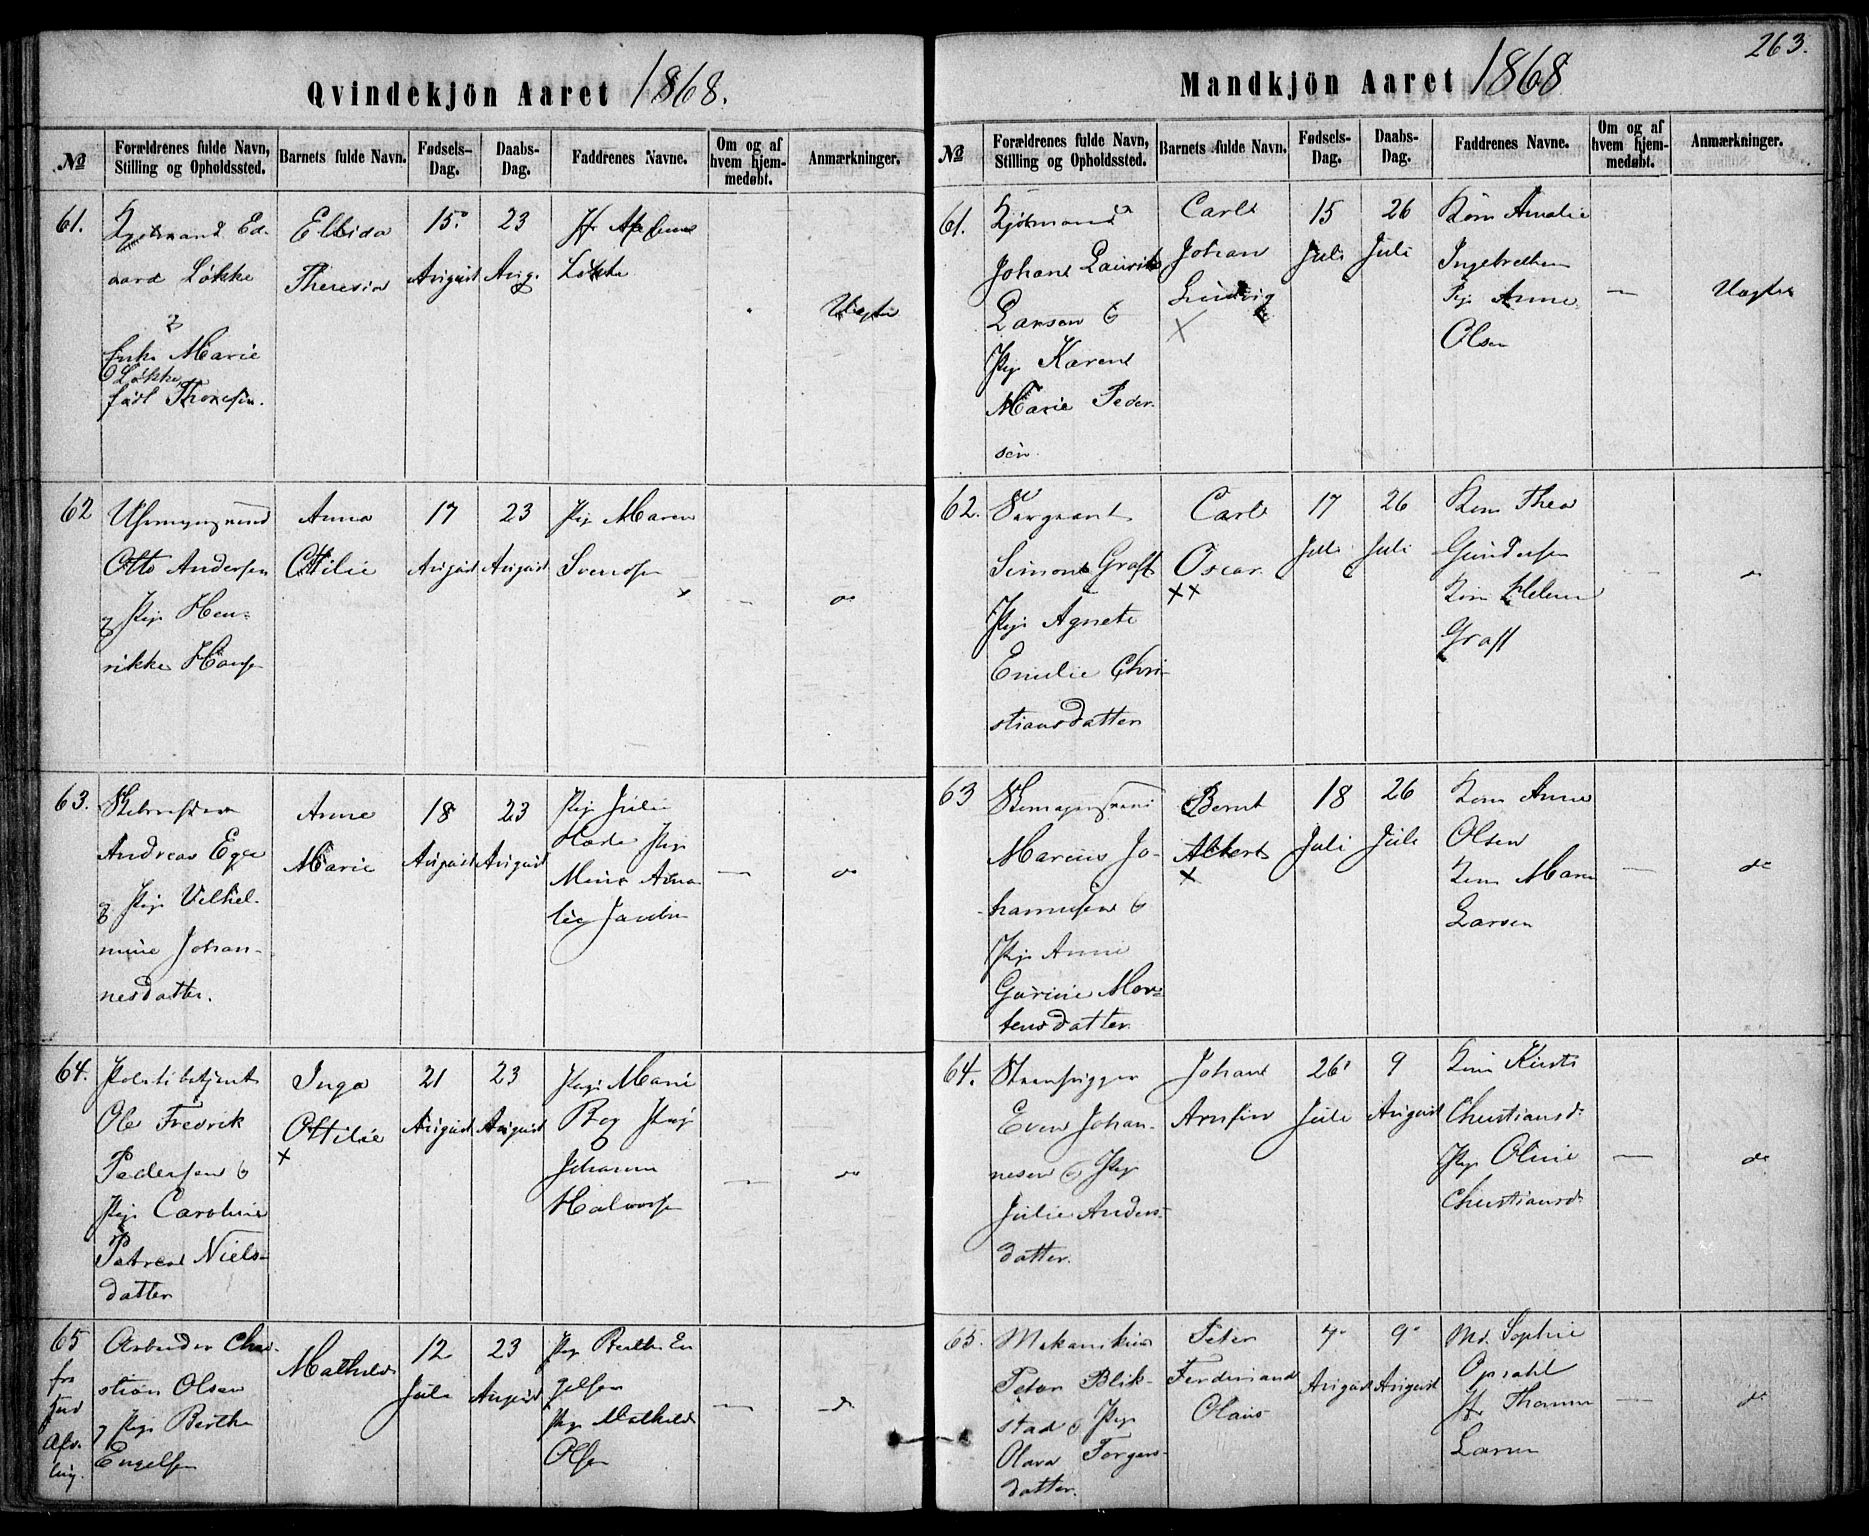 Qvindekjön Aaret 1868.
№
Forældrenes fulde Navn,
Stilling og Opholdssted.
Barnets fulde Navn.
Fødsels-
Dag.
Daabs-
Dag.
Faddrenes Navne.
Om og af
hvem hjem-
medøbt.
Anmærkninger.
61.
Ed-
vard Løkke
Marie
Løkke
født Thoresen.
Theresia
15
August
23
Aug.
Løkke
Uægte
62
Otto Andersen
og Pige Hen-
rikke Hansen
Anna
Ottilie
17
August
23
August
Pige Maren
Svensen
—
do
63.
Andreas Eger
og Pige Vilhel-
mine Johan-
nesdatter.
Anne
Marie
18
August
23
August
Pige Julie
Pige
—
do
64.
Politibetjent
Ole Fredrik
Pedersen &
Pige Caroline
Petrea Niels-
datter
Inga
Ottilie
×
21
August
23
August
Pige Marie
Pige
Johanne
Halvorsen
—
do
65
fra
Arbeider Chri-
stian Olsen
og Pige Berthe
Engelsen
Mathilde
12
Juli
23
August
Pige Berthe En
gelsen
Pige Mathilde
Olsen
—
do
263.
Mandkjön Aaret 1868
№
Forældrenes fulde Navn,
Stilling og Opholdssted.
Barnets fulde Navn.
Fødsels-
Dag.
Daabs-
Dag.
Faddrenes Navne.
Om og af
hvem hjem-
medøbt.
Anmærkninger.
61.
Johan Laurits
Larsen &
Pige Karen
Marie Peder-
sen.
Carl
Johan
Ludvig
×
15
Juli
26
Juli
Kone Amalie
Ingebrethsen
Pige Anne
Olsen
—
Uægte
62.
Sergeant
Simon Graff
Pige Agnete
Emilie Chri-
stiansdatter
Carl
Oscar
××
17
Juli
26
Juli
Kone Thea
Gundersen
Kone Helene
Graff
—
do
63
Marius Jo-
hannesen &
Pige Anne
Gurine Mor-
tensdatter
Bernt
Albert
×
18
Juli
26
Juli
Kone Anne
Olsen
Kone Maren
Larsen
—
do
64.
Even Johan-
nesen & Pige
Julie Anders-
datter.
Johan
Arnfin
26
Juli
9
August
Kone Kirsti
Christiansd
Pige Oline
Christiansd
—
do
65.
Mekanikus
Peter Blik-
stad & Pige
Olava Torgers-
datter.
Peter
Ferdinand
Olaus
4
August
9
August
Md. Sophie
Opsahl
Hr Thomas
Larsen
—
do